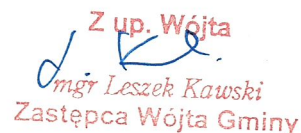 Z up. Wójta
mgr Leszek Kawski
Zastępca Wójta Gminy